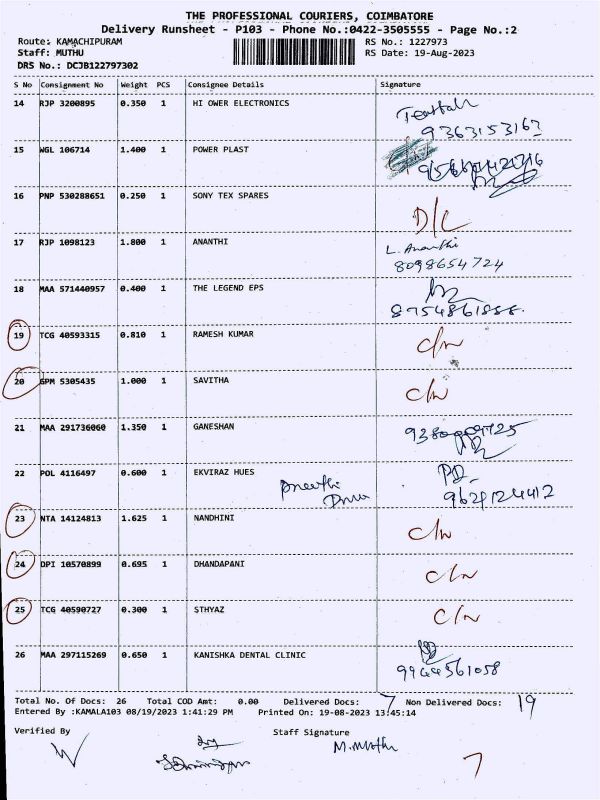 THE PROFESSIONAL COURIERS, COIMBATORE
Delivery Runsheet - P103 - Phone No.:0422-3505555 - Page No.:2
Route: KAMACHIPURAM RS No.: 1227973
Staff: MUTHU RS Date: 19-Aug-2023
DRS No.: DCJB122797302
S No Consignment No Weight PCS Consignee Details Signature
14 RJP 3200895 0.350 1 HI OWER ELECTRONICS
9363153163
15 WGL 106714 1.400 1 POWER PLAST
16 PNP 530288651 0.250 1 SONY TEX SPARES D/C
17 RJP 1098123 1.800 1 ANANTHI L. Ananthi
8098654724
18 MAA 571440957 0.400 1 THE LEGEND EPS
8754861888.
19 TCG 40593315 0.810 1 RAMESH KUMAR C/n
20 GPM 5305435 1.000 1 SAVITHA C/n
21 MAA 291736060 1.350 1 GANESHAN
22 POL 4116497 0.600 1 EKVIRAZ HUES
9629124412
23 NTA 14124813 1.625 1 NANDHINI C/n
24 DPI 10570899 0.695 1 DHANDAPANI C/n
25 TCG 40590727 0.300 1 STHYAZ C/n
26 MAA 297115269 0.650 1 KANISHKA DENTAL CLINIC
9944561058
Total No. Of Docs: 26 Total COD Amt: 0.00 Delivered Docs: 7 Non Delivered Docs: 19
Entered By :KAMALA103 08/19/2023 1:41:29 PM Printed On: 19-08-2023 13:45:14
Verified By Staff Signature
M. Muthu
7